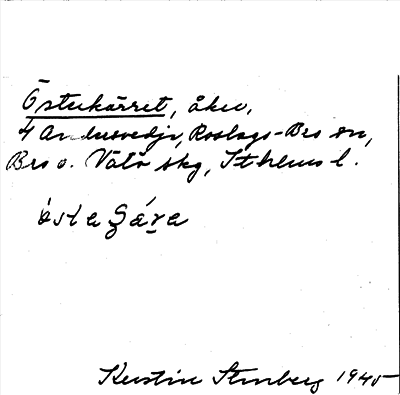 Östukärret, åker,
4 Andersvedja, Roslags-Bro sn,
Bro o. Vätö skg, Sthlms l.
östaʒára
Kerstin Stenberg 1945